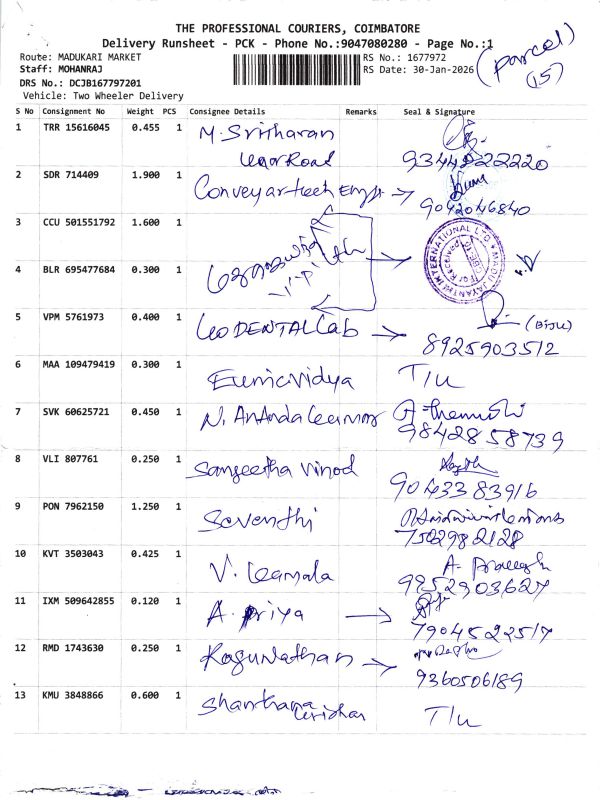 THE PROFESSIONAL COURIERS, COIMBATORE
Delivery Runsheet - PCK - Phone No.:9047080280 - Page No.:1
(Parcel)
(15)
Route: MADUKARI MARKET
RS No.: 1677972
Staff: MOHANRAJ
RS Date: 30-Jan-2026
DRS No.: DCJB167797201
Vehicle: Two Wheeler Delivery
S No Consignment No Weight PCS Consignee Details Remarks Seal & Signature
1 TRR 15616045 0.455 1 M. Sritharan
Road
2 SDR 714409 1.900 1 Conveyartech →
9042046840
3 CCU 501551792 1.600 1
MADU JAYANTHI INTERNATIONAL LTD
4 BLR 695477684 0.300 1
5 VPM 5761973 0.400 1 Leo DENTAL Lab → (Biju)
8925903512
6 MAA 109479419 0.300 1 T/L
7 SVK 60625721 0.450 1 N. Ananda
9842858739
8 VLI 807761 0.250 1 Sangeetha Vinod
9043383916
9 PON 7962150 1.250 1 Seventhi
7502982128
10 KVT 3503043 0.425 1 V. Kamala
9952903627
11 IXM 509642855 0.120 1 A. Priya →
7904522517
12 RMD 1743630 0.250 1 Ragunathan →
9360506189
13 KMU 3848866 0.600 1 T/L